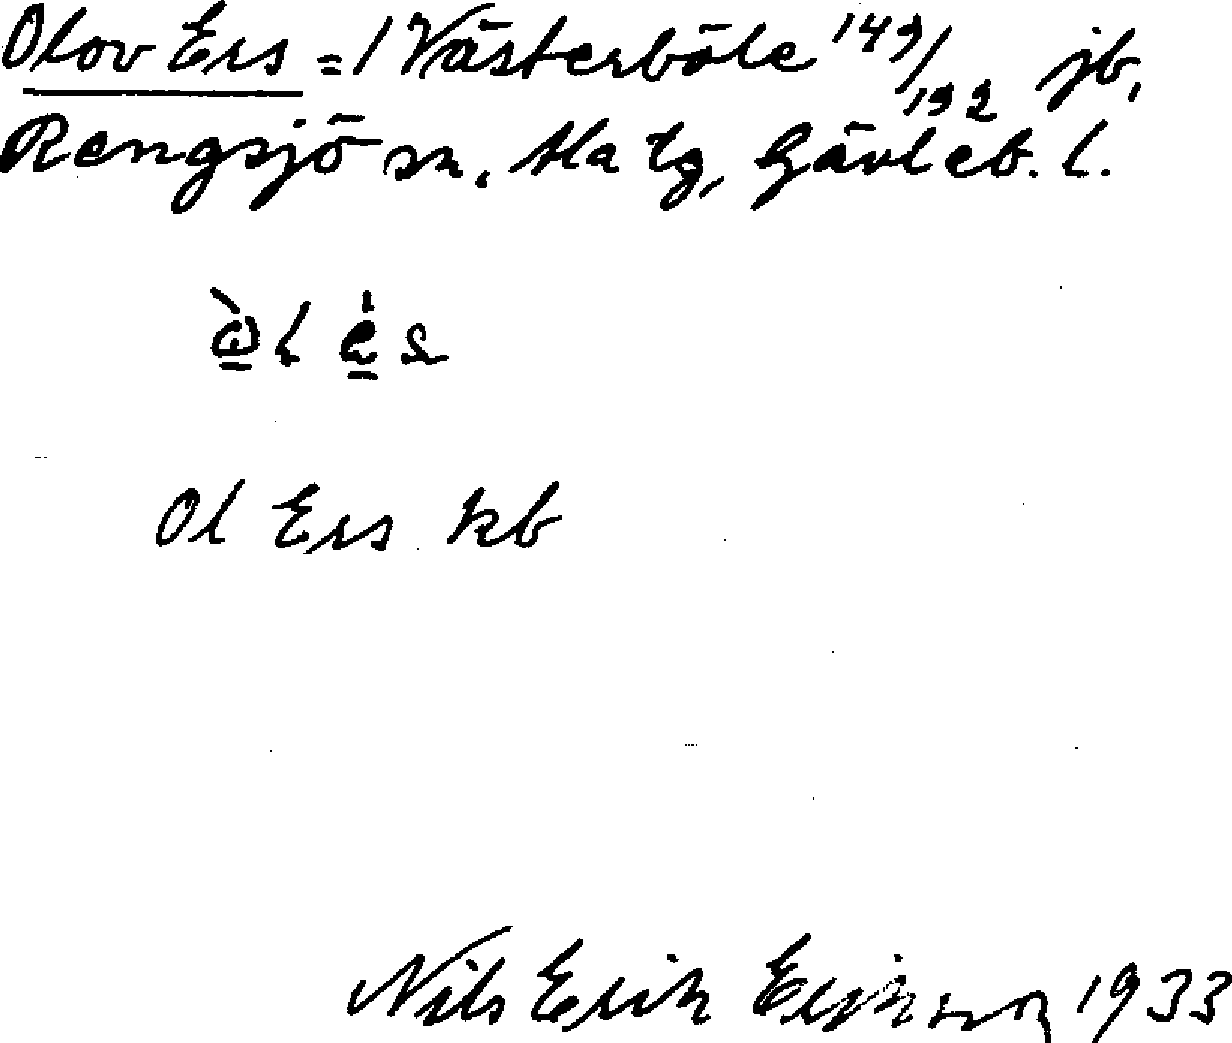 Olov Ers = / Västerböle 143/192 jb,
Rengsjö sn, Ala tg, Gävleb. l.
Ol Ers kb
Nils Erik Eriksson 1933